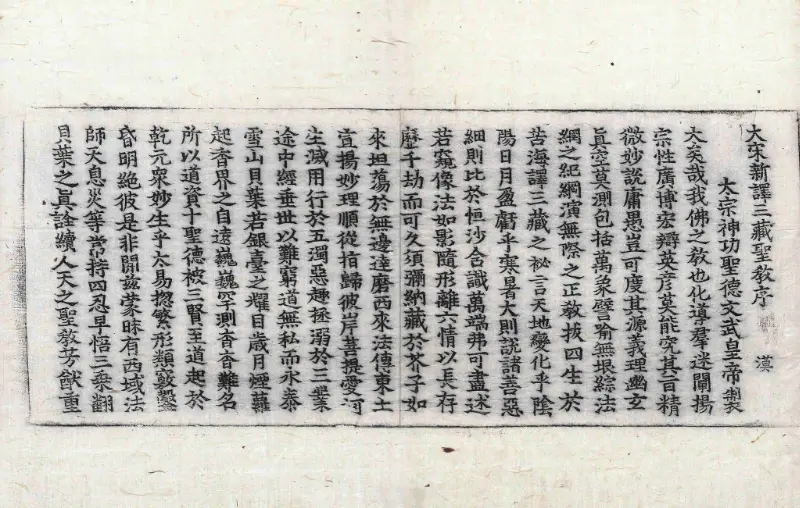 大宋新譯三藏聖教序 漢
太宗神功聖德文武皇帝 製
大矣哉我佛之教也化導羣迷闡揚
宗性廣博宏辯英彥莫能究其旨精
微妙說庸愚豈可度其源義理幽玄
真空莫測包括萬象譬喻無垠綜法
網之紀綱演無際之正教拔四生於
苦海譯三藏之祕言天地變化乎陰
陽日月盈虧乎寒暑大則說諸善惡
細則比於恒沙含識萬端弗可盡述
若窺像法如影隨形離六情以長存
歷千劫而可久須彌納藏於芥子如
來坦蕩於無邊達磨西來法傳東土
宣揚妙理順從指歸彼岸菩提愛河
生滅用行於五濁惡趣拯溺於三業
途中經垂世以難窮道無私而永泰
雪山貝葉若銀臺之耀目歲月煙蘿
起香界之自遠巍巍罕測杳杳難名
所以道資十聖德被三賢至道起於
乾元衆妙生乎太易揔繁形類竅鑿
昏明絕彼是非開茲蒙昧有西域法
師天息災等常持四忍早悟三乘翻
貝葉之真詮續人天之聖教芳猷重